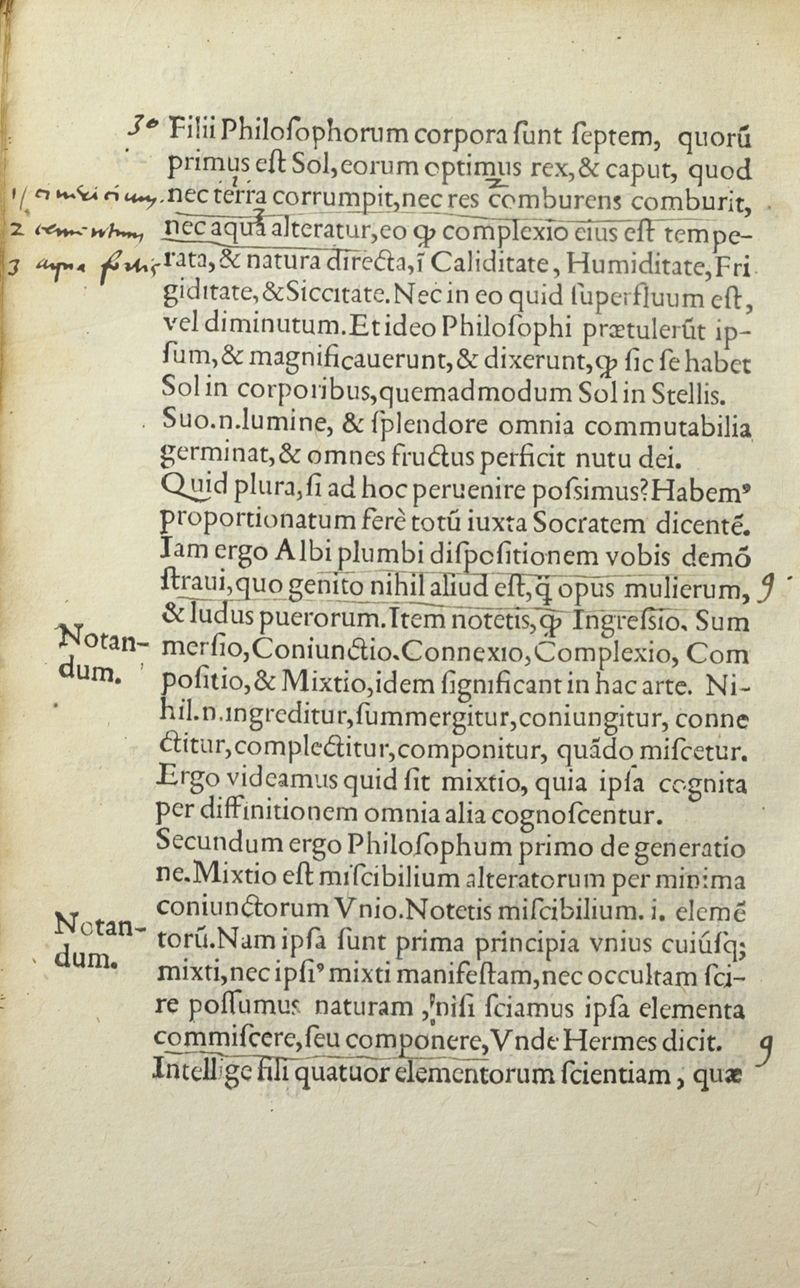 Filii Philoſophorum corpora ſunt ſeptem, quorū
primus eſt Sol, eorum optimus rex, & caput, quod
nec terra corrumpit, nec res comburens comburit,
nec aqua alteratur, eo ꝙ complexio eius eſt tempe-
rata, & natura directa, ī Caliditate, Humiditate, Fri
giditate, & Siccitate. Nec in eo quid ſuperfluum eſt,
vel diminutum. Et ideo Philoſophi prætulerūt ip-
ſum, & magnificauerunt, & dixerunt, ꝙ ſic ſe habet
Sol in corporibus, quemadmodum Sol in Stellis.
Suo.n.lumine, & ſplendore omnia commutabilia
germinat, & omnes fructus perficit nutu dei.
Quid plura, ſi ad hoc peruenire poſsimus? Habemꝰ
proportionatum ferè totū iuxta Socratem dicentē.
Iam ergo Albi plumbi diſpoſitionem vobis demō
ſtraui, quo genito nihil aliud eſt, q̄ opus mulierum,
& ludus puerorum. Item notetis, ꝙ Ingreſsio, Sum
Notan- merſio, Coniunctio. Connexio, Complexio, Com
dum. poſitio, & Mixtio, idem ſignificant in hac arte. Ni-
hil.n.ingreditur, ſummergitur, coniungitur, conne
ctitur, complectitur, componitur, quādo miſcetur.
Ergo videamus quid ſit mixtio, quia ipſa cognita
per diffinitionem omnia alia cognoſcentur.
Secundum ergo Philoſophum primo de generatio
ne. Mixtio eſt miſcibilium alteratorum per minima
coniunctorum Vnio. Notetis miſcibilium. i. elemē
Notan- torū. Nam ipſa ſunt prima principia vnius cuiúſq;
dum. mixti, nec ipſiꝰ mixti manifeſtam, nec occultam ſci-
re poſſumus naturam, niſi ſciamus ipſa elementa
commiſcere, ſeu componere, Vnde Hermes dicit.
Intellige fili quatuor elementorum ſcientiam, quæ